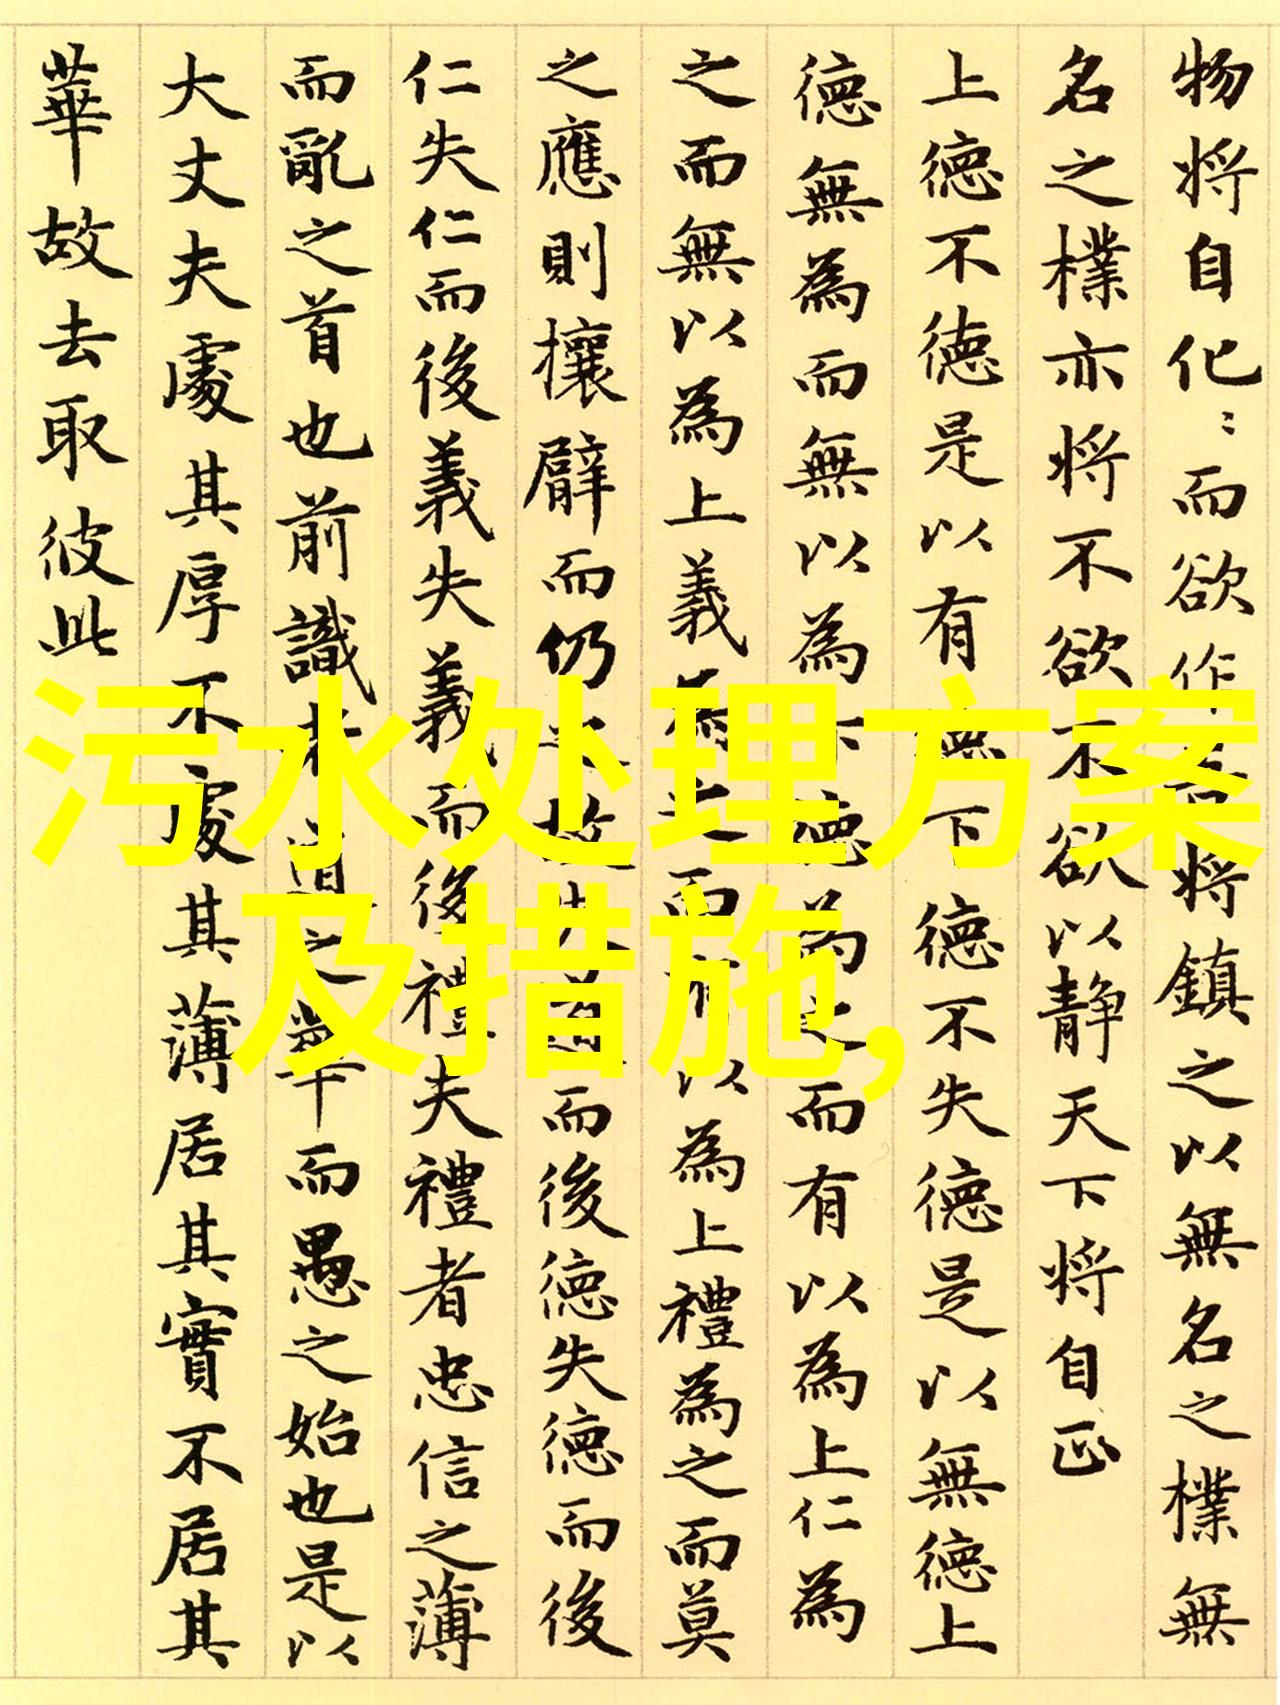 物将自化〻而欲作将鎮之以無名之樸無
名之樸亦将不欲不欲以静天下将自正
上德不德是以有德下德不失德是以無德上
德無為而無以為下德為之而有以為上仁為
之而無以為上義為之而有以為上禮為之而莫
之應則攘臂而仍之故失道而後德失德而後
仁失仁而後義失義而後禮夫禮者忠信之薄
而亂之首也前識者道之華而愚之始也是以
大丈夫處其厚不處其薄居其實不居其
華故去取彼此
污水处理方案
及措施,